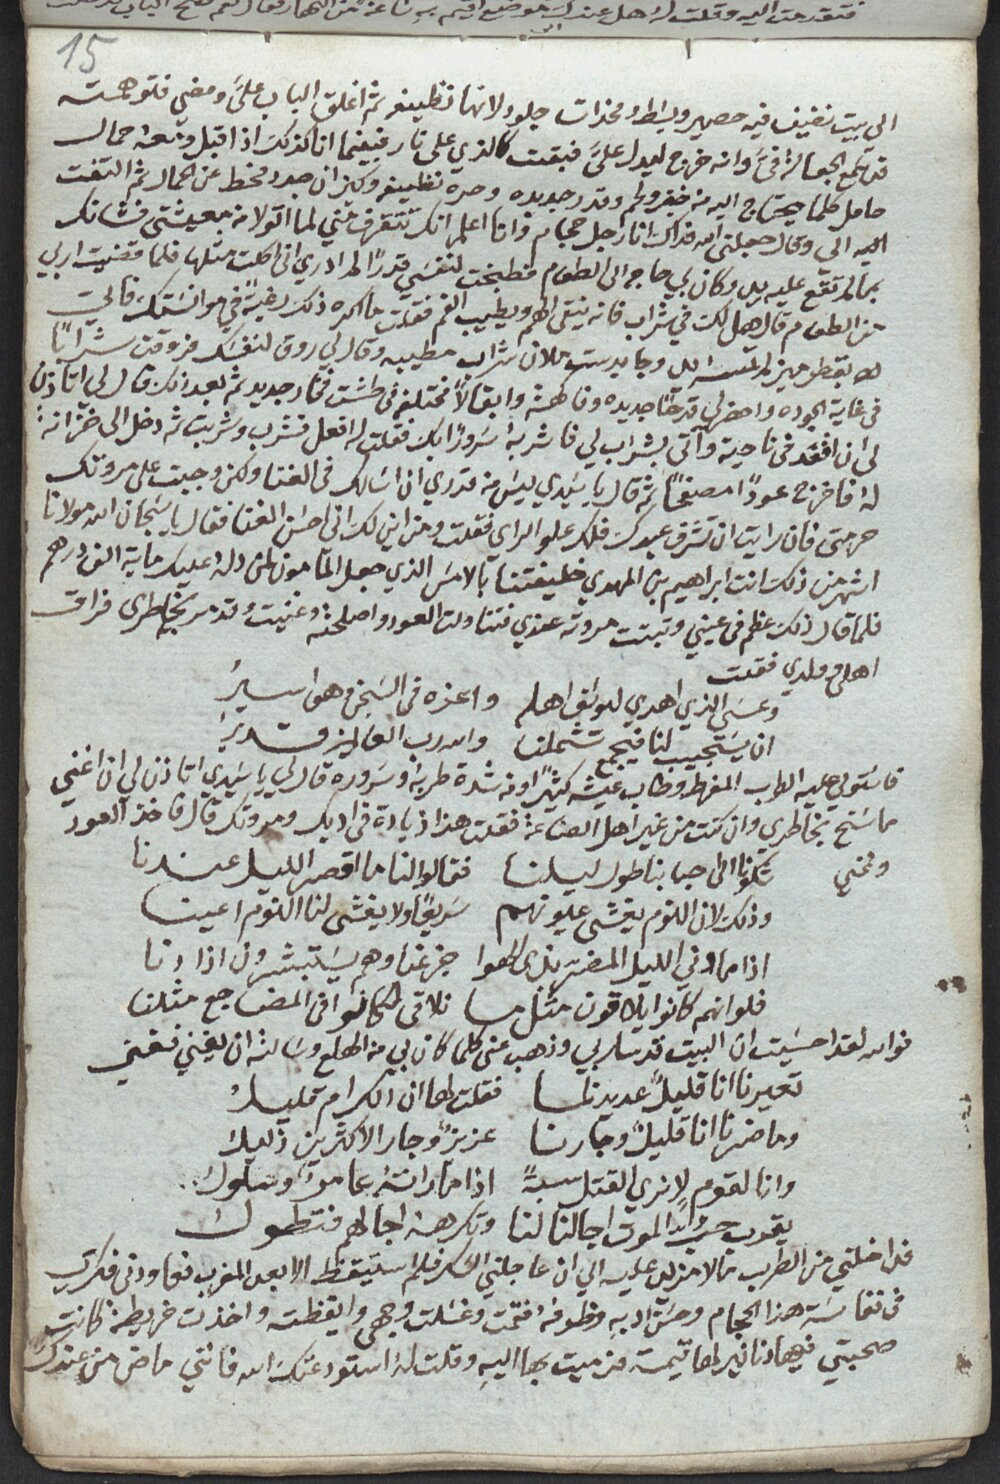 فتقدمت اليه وقلت له هل عندك موضع اقيم به ساعة من النهار فقال نعم وفتح الباب
15
الى بيت نضيف فيه حصير وبساط ومخدات جلود الا انها نظيفه ثم اغلق الباب علىَّ ومضي فتوهمته
قد سمع الجعالة فيَّ وانه خرج ليدل علىَّ فبقت كالذي على نار فبينما انا كذلك اذ اقبل ومعه حمال
حامل كلما يحتاج اليه من خبز ولحم وقدر جديده وجره نظيفه وكيزان جدد فحط عن الحمال ثم التفت
اليه الي وقال جعلني الله فداك انا رجل حجام وانا اعلم انك تتقرف مني لما اتولا من معيشتي فشانك
بما لم تقع عليه يد وكان لي حاجه الى الطعام فطبخت لنفسي قدرًا لم ادري اني اكلت مثلها فلما قضيت اربي
من الطعام قال هل لك في شراب فانه ينقي الهم ويطيب الغم فقلت ما اكره ذلك رغبةً في موانستك فاتى
بقطرميز لم تمسه يد وجا بدست ملان شراب مطيبه وقال لي روق لنفسك فروقت شرابًا
في غاية الجوده واحضر لي قدحًا جديده وفاكهة وابقالاً مختلفه في طشت فخار جديد ثم بعد ذلك قال لي اتاذن
لي ان اقعد في ناحية وآتي بشراب لي فاشربه سرورًا بك فقلت له افعل فشرب وشربت ثم دخل الى خزانه
له فاخرج عودًا مصفحًا ثم قال يا سيدي ليس من قدري ان اسالك في الغنا ولكن وجبت على مروتك
حرمتي فان رايت ان تشرف عبدك فلك علو الراي فقلت ومن اين لك اني احسن الغنا فقال يا سبحان الله مولانا
اشهر من ذلك انت ابراهيم بن المهدي خليفتنا بالامس الذي جعل المامون لمن دله عليك ماية الف درهم
فلما قال ذلك عظم في عيني وتبتت مروته عندي فتناولت العود واصلحته وغنيت وقد مر بخاطرى فراق
اهلى وولدي فقلت
وعسى الذي اهدي ليوسف اهله واعزه في السجن وهو اسيرُ
ان يستجيب لنا فيجمع شملنا والله رب العالمين قديرُ
فاستولى عليه الطرب المفرط وطاب عيشه كثيرًا ومن شدة طربهُ وسروره قال لي يا سيدي اتاذن لي ان اغني
ما سنح بخاطري وان كنت من غير اهل الصناعة فقلت هذا زيادة في ادبك ومروتك قال فاخذ العود
وغني شكونا الى احبابنا طول ليلنا فقالوا لنا ما اقصر الليل عندنا
وذلك لان النوم يغشى عيونهم سريعًا ولا يغشى لنا النوم اعينا
اذا ما دني الليل المضر بذي الهوا جزعنا وهم يستبشرون اذا دنا
فلو انهم كانوا يلاقون مثل ما نلاقي لكانوا في المضاجع مثلنا
فوالله لقد احسيت ان البيت قد سار بي وذهب عني كلما كان بي من الهلع وسالته ان يغني فغنى
تعيرنا انا قليلٌ عديدنا فقلت لها ان الكرام قليلُ
وما ضرنا انا قليلٌ وجارنا عزيزٌ وجار الاكثرين ذليلُ
وانا لقوم لا نري القتل سبةً اذا ما راته عامرٌ وسلولُ
يقرب حب الموت اجالنا لنا وتكرهه اجالهم فتطولُ
فداخلني من الطرب ما لا مزيد عليه الي ان عاجلني السكر فلم استيقظ الا بعد المغرب فعاودني فكري
في نفاسة هذا الحجام وحسن ادبه وظرفه فقمت وغسلت وجهي وايقظته واخذت خريطة كانت
صحبتي فيها دنانير لها قيمة فرميت بها اليه وقلت له استودعتك الله فانني ماضٍ من عندك